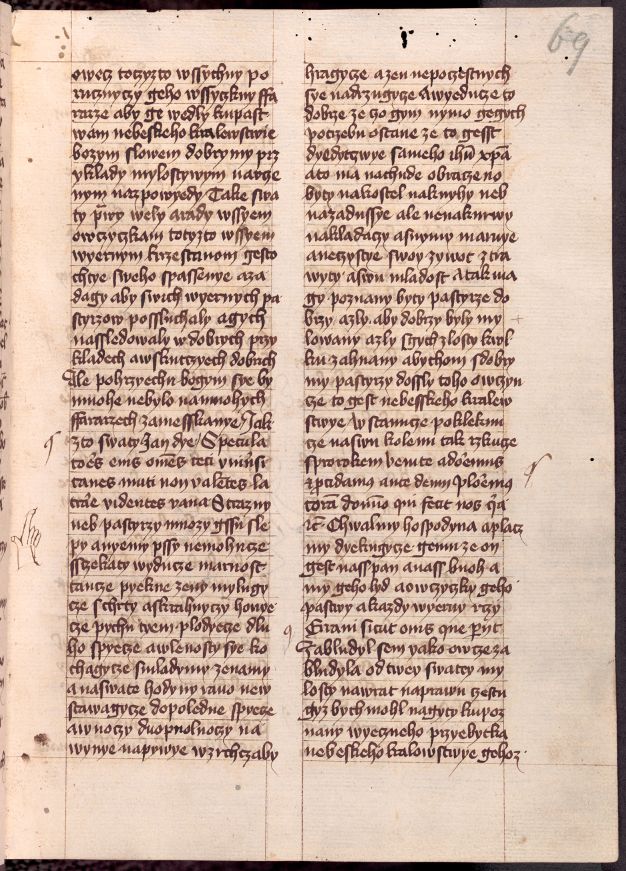 69
owecz totyzto wssychny po
rucznyczy geho wssyczkny ffa
rarze aby ge wedly kupast
wam nebeskeho kralewstwie
bozym slowem dobrymy prz
yklady mylostywym narze
nym nazpowyedy Take swa
ty prwy wely arady wssyem
owczyczkam totyzto wssyem
wyernym krzestanom gesto
chtye sweho spassenye aza
dagy aby swich wyernych pa
styrzow possluchaly agych
nassledowaly w dobrych przy
kladech awskutczych dobrich
Ale pohrzyechu bogym sye by
mnohe nebylo namnohych
ffararzech zamesskanye Jak
zto swaty Jan dye Specula
tores eius omnes ceci vniuersi
canes muti non valentes la
trare videntes vana Strazny
neb pastyrzy mnozy gssu sle
py anyemy pssy nemohucze
sstzekaty wyducze marnost
tancze pyekne zeny mylugy
cze schrty askrahuyczy honye
cze pychu tyem plodyecze dlu
ho spyecze awlenosty sye ko
chagycze smladymy zenamy
a naswate hodyny rano new
stawagycze dopoledne spyecze
awnoczy duopolnoczy na
wynye napywye wzrchczaby
hragycze azen nepoczestnych
sye nadrzugycze Awyeducze to
dobrze ze zo gym nymo gegych
poczybu ostane ze to gesst
dyedyczwye sameho ihu xpa
ato ma nachude obracze no
byty nakostel naknyhy neb
nazadussye ale nenakurwy
nakladaczy asnymy marnye
aneczystye swoy zywot ztra
wyty aswu mladost Atak ma
gy poznany byty pastyrze do
brzy azly aby dobrzy byly my
lowany azly sgych zlosty kwyl
ku zahnany abychom sdobry
my pastyrzy dossly toho owczyn
cze to gest nebesskeho kralew
stwye Wstanucze poklekni
cze naswu kolenu tak rzkuge
sprorokem venite adoremus
et procidamus ante deum ploremus
coram domino qui fecit nos quia
ic Chwalmy hospodyna aplacz
my dyekugycze gemu ze on
gest nass pan anass buoh a
my geho lyd aowczyczky geho
pastwy akazdy wyerny rczy
Erraui sicut ouis que periit
Zabludyl sem yako owcze za
bludyla odtwey swatey my
losty nawrat naprawu czestu
gyz bych mohl nagyty kupoz
nany wyeczneho przyebytka
nebeskeho kralowstwye gehoz